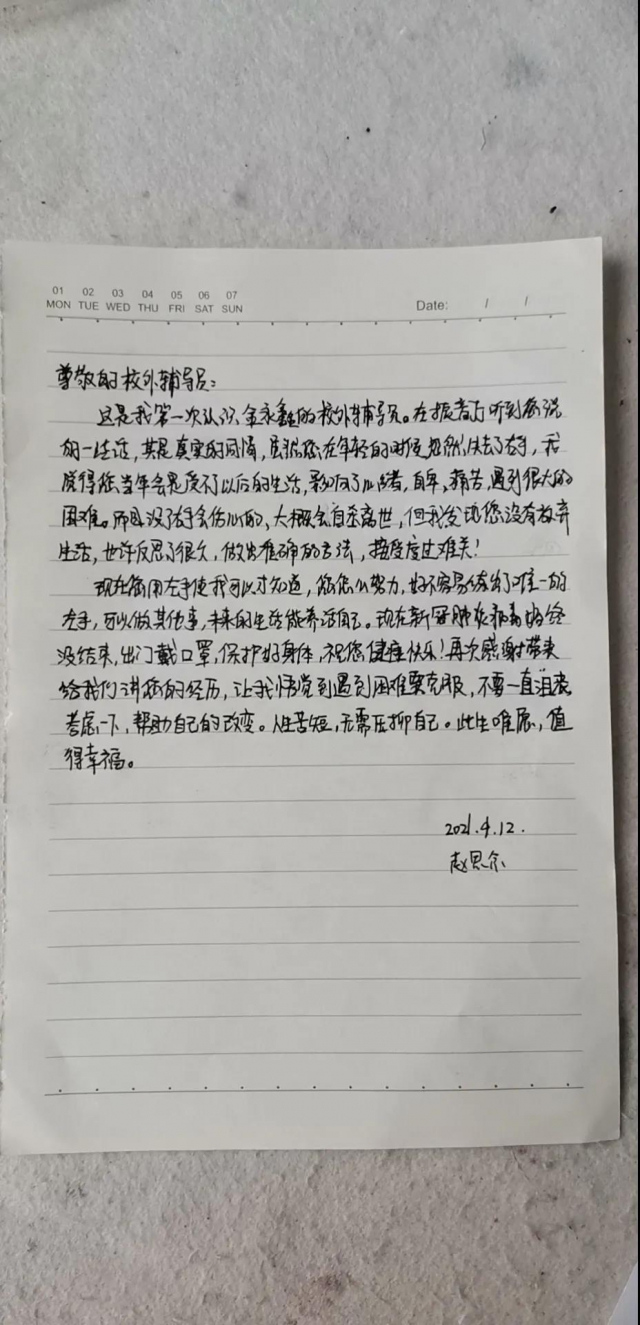 01 02 03 04 05 06 07
MON TUE WED THU FRI SAT SUN
Date: / /
尊敬的校外辅导员:
这是我第一次认识金永鑫的校外辅导员。在报告厅听到您说
的一些话,其是真实的同情,虽说您在年轻的时候忽然失去了右手,我
觉得您当年会是受不了以后的生活,影响了心绪,自卑,痛苦,遇到很大的
困难。而且没了右手会伤心的,大概会自杀离世,但我发现您没有放弃
生活,也许反思了很久,做出准确的方法,接受度过难关!
现在您用左手使我可以才知道,您怎么努力,好不容易练出了唯一的
左手,可以做其他事,未来的生活能养活自己。现在新冠肺炎病毒始终
没结束,出门戴口罩,保护好身体,祝您健康快乐!再次感谢带来
给我们讲您的经历,让我悟觉到遇到困难要克服,不要一直沮丧
考虑一下,帮助自己的改变。人生苦短,无需压抑自己。此生唯愿,值
得幸福。
2021.4.12.
赵思尔